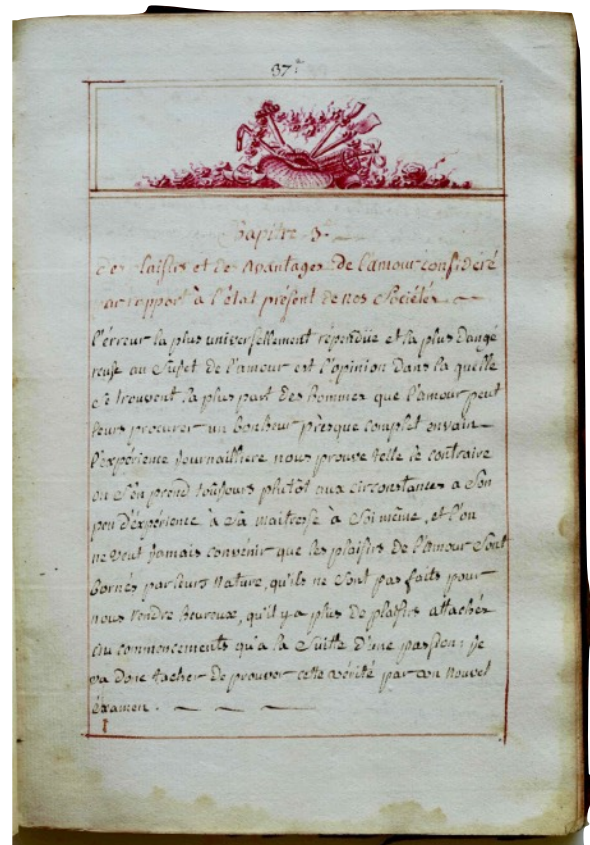 37.
Chapitre 3.
des plaisirs et des avantages de l'amour considéré
par rapport à l'état présent de nos Sociétés
l'érreur la plus universellement répendüe et la plus dangé
reuse au Sujet de l'amour est l'opinion dans la quélle
Se trouvent la plus part des hommes que l'amour peut
leurs procurer un bonheur présque complet envain
l'expérience journailliere nous prouve telle le contraire
on S'en prend toujours plutôt aux circonstances a Son
peu d'éxpérience à Sa maitresse à Soi même, et l'on
ne veut jamais convénir que les plaisirs de l'amour Sont
bornés par leurs Nature, qu'ils ne Sont pas faits pour
nous rendre heureux, qu'il y a plus de plaisirs attachés
au commencements qu'a la Suitte d'une passion; je
va donc tacher de prouver cette vérité par un nouvel
éxamen.